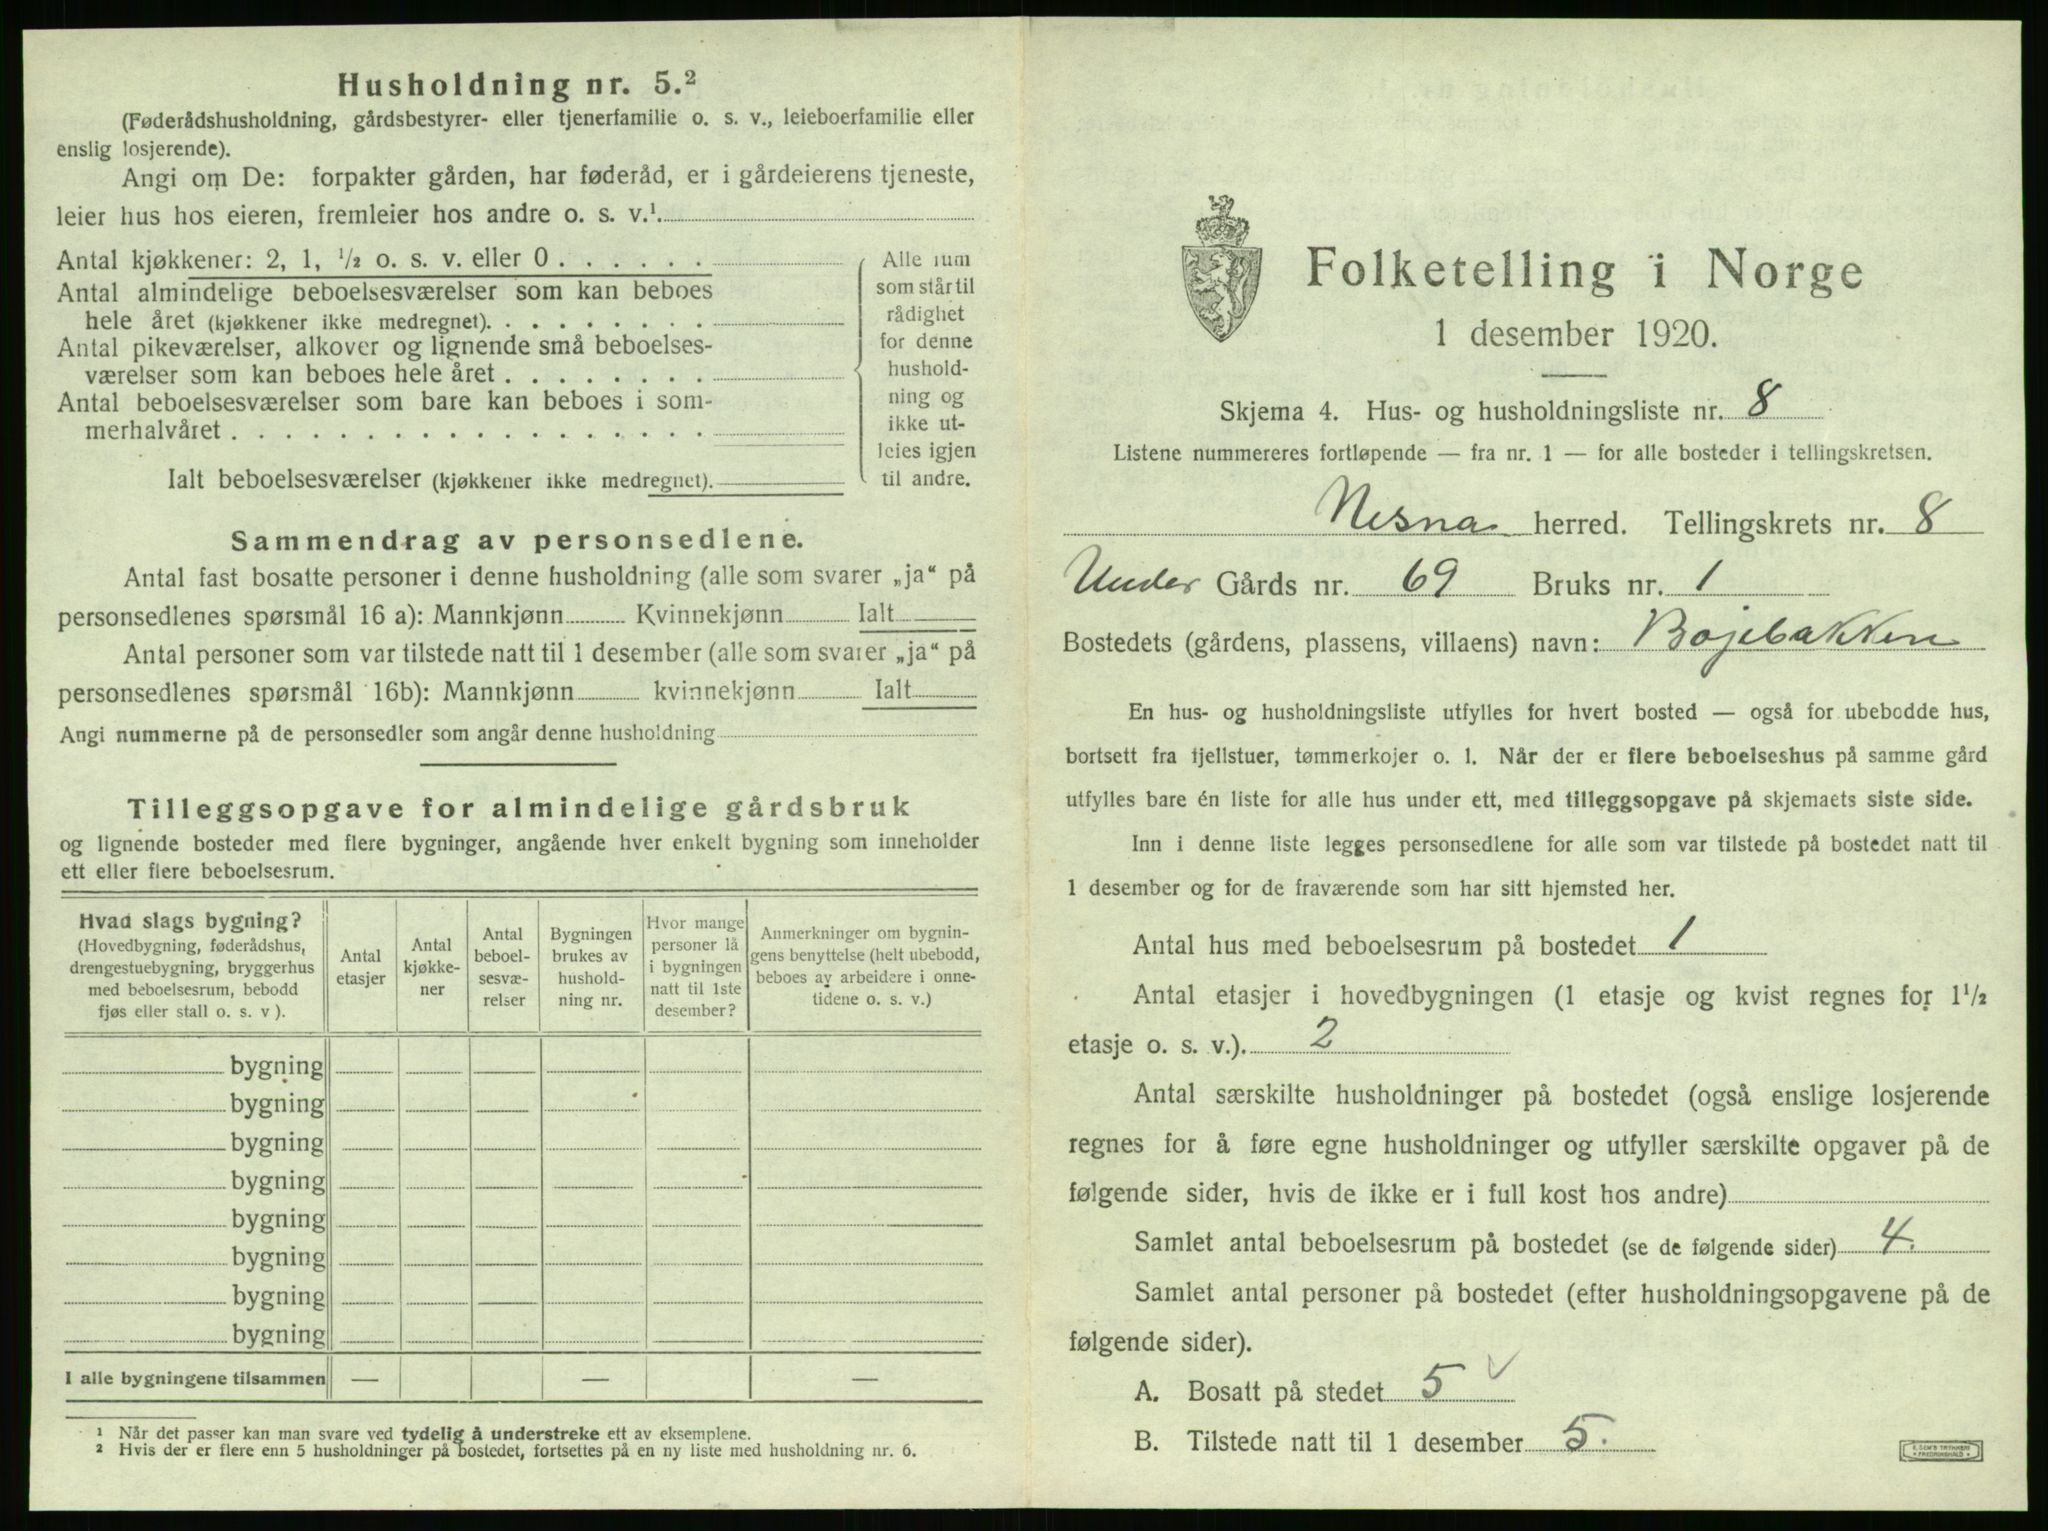 Husholdning nr. 5.²
(Føderådshusholdning, gårdsbestyrer- eller tjenerfamilie o. s. v., leieboerfamilie eller
enslig losjerende).
Angi om De: forpakter gården, har føderåd, er i gårdeierens tjeneste,
leier hus hos eieren, fremleier hos andre o. s. v.¹
Antal kjøkkener: 2, 1, ½ o. s. v. eller 0
Antal almindelige beboelsesværelser som kan beboes
hele året (kjøkkener ikke medregnet).
Antal pikeværelser, alkover og lignende små beboelses-
værelser som kan beboes hele året
Antal beboelsesværelser som bare kan beboes i som-
merhalvåret
Ialt beboelsesværelser (kjøkkener ikke medregnet).
Alle rum
som står til
rådighet
for denne
hushold-
ning og
ikke ut-
leies igjen
til andre.
Sammendrag av personsedlene.
Antal fast bosatte personer i denne husholdning (alle som svarer „ja“ på
personsedlenes spørsmål 16 a): Mannkjønn Kvinnekjønn Ialt
Antal personer som var tilstede natt til 1 desember (alle som svarer „ja“ på
personsedlenes spørsmål 16b): Mannkjønn kvinnekjønn Ialt
Angi nummerne på de personsedler som angår denne husholdning
Tilleggsopgave for almindelige gårdsbruk
og lignende bosteder med flere bygninger, angående hver enkelt bygning som inneholder
ett eller flere beboelsesrum.
Hvad slags bygning?
(Hovedbygning, føderådshus,
drengestuebygning, bryggerhus
med beboelsesrum, bebodd
fjøs eller stall o. s. v ).
Antal
etasjer
Antal
kjøkke-
ner
Antal
beboel-
sesvæ-
relser
Bygningen
brukes av
hushold-
ning nr.
Hvor mange
personer lå
i bygningen
natt til 1ste
desember?
Anmerkninger om bygnin-
gens benyttelse (helt ubebodd,
beboes av arbeidere i onne-
tidene o. s. v.)
bygning
bygning
bygning
bygning
bygning
bygning
bygning
bygning
I alle bygningene tilsammen — — —
¹ Når det passer kan man svare ved tydelig å understreke ett av eksemplene.
² Hvis der er flere enn 5 husholdninger på bostedet, fortsettes på en ny liste med husholdning nr. 6.
Folketelling i Norge
1 desember 1920.
Skjema 4. Hus- og husholdningsliste nr. 8
Listene nummereres fortløpende — fra nr. 1 — for alle bosteder i tellingskretsen.
Nesna herred. Tellingskrets nr. 8
Under Gårds nr. 69 Bruks nr. 1
Bostedets (gårdens, plassens, villaens) navn: Bojebakken
En hus- og husholdningsliste utfylles for hvert bosted — også for ubebodde hus,
bortsett fra fjellstuer, tømmerkojer o. l. Når der er flere beboelseshus på samme gård
utfylles bare én liste for alle hus under ett, med tilleggsopgave på skjemaets siste side.
Inn i denne liste legges personsedlene for alle som var tilstede på bostedet natt til
1 desember og for de fraværende som har sitt hjemsted her.
Antal hus med beboelsesrum på bostedet 1
Antal etasjer i hovedbygningen (1 etasje og kvist regnes for 1½
etasje o. s. v.). 2
Antal særskilte husholdninger på bostedet (også enslige losjerende
regnes for å føre egne husholdninger og utfyller særskilte opgaver på de
følgende sider, hvis de ikke er i full kost hos andre)
Samlet antal beboelsesrum på bostedet (se de følgende sider) 4.
Samlet antal personer på bostedet (efter husholdningsopgavene på de
følgende sider).
A. Bosatt på stedet 5 √
B. Tilstede natt til 1 desember 5.
E. SEM'S TRYKKERI
FREDRIKSHALD